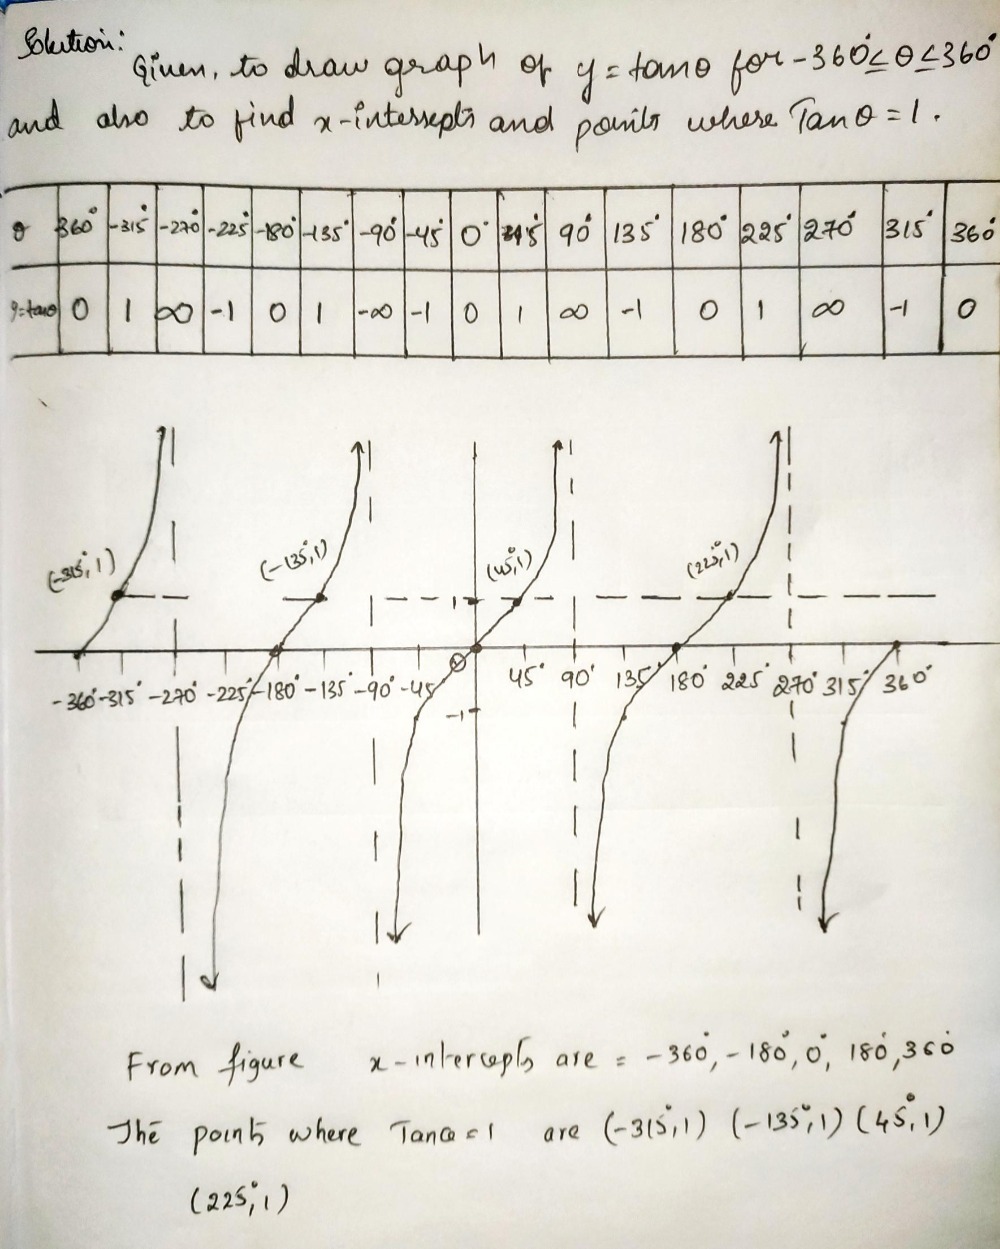 Solution:
Given, to draw graph of y = tanθ for -360° ≤ θ ≤ 360°
and also to find x-intersepts and points where Tanθ = 1.
θ 360° -315° -270° -225° -180° -135° -90° -45° 0° 45° 90° 135° 180° 225° 270° 315° 360°
y=tanθ 0 1 ∞ -1 0 1 -∞ -1 0 1 ∞ -1 0 1 ∞ -1 0
(-315°,1) (-135°,1) (45°,1) (225°,1)
1
O
-360° -315° -270° -225° -180° -135° -90° -45 45° 90° 135° 180° 225° 270° 315° 360°
-1
From figure x-intercepts are = -360°, -180°, 0°, 180°, 360
The points where Tanθ = 1 are (-315°,1) (-135°,1) (45°,1)
(225°,1)